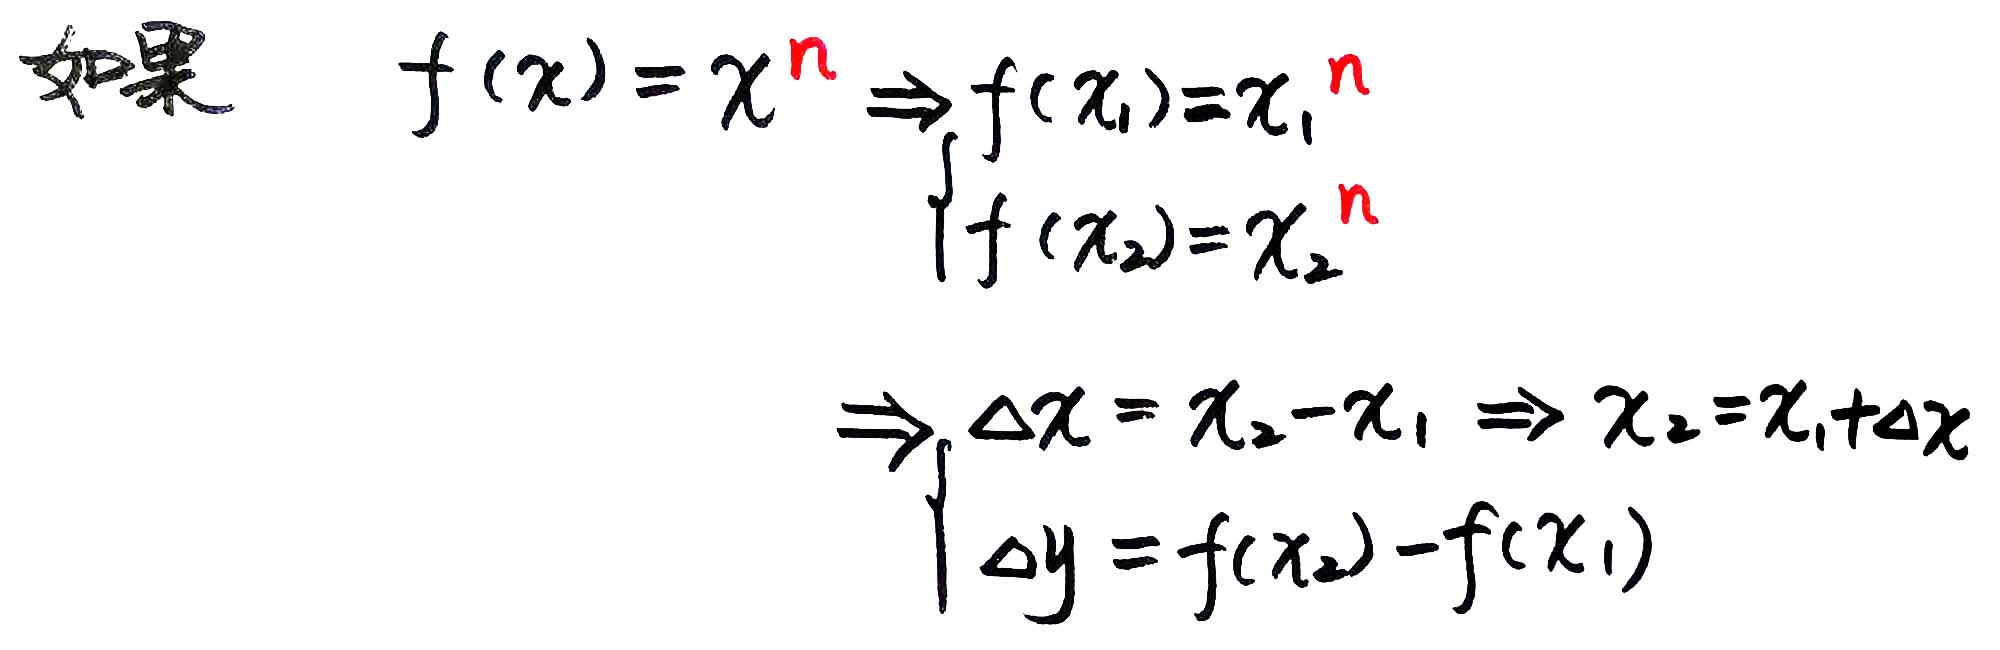 如果 f(x) = x^n ⇒ { f(x₁) = x₁^n
f(x₂) = x₂^n
⇒ { Δx = x₂ - x₁ ⇒ x₂ = x₁ + Δx
Δy = f(x₂) - f(x₁)